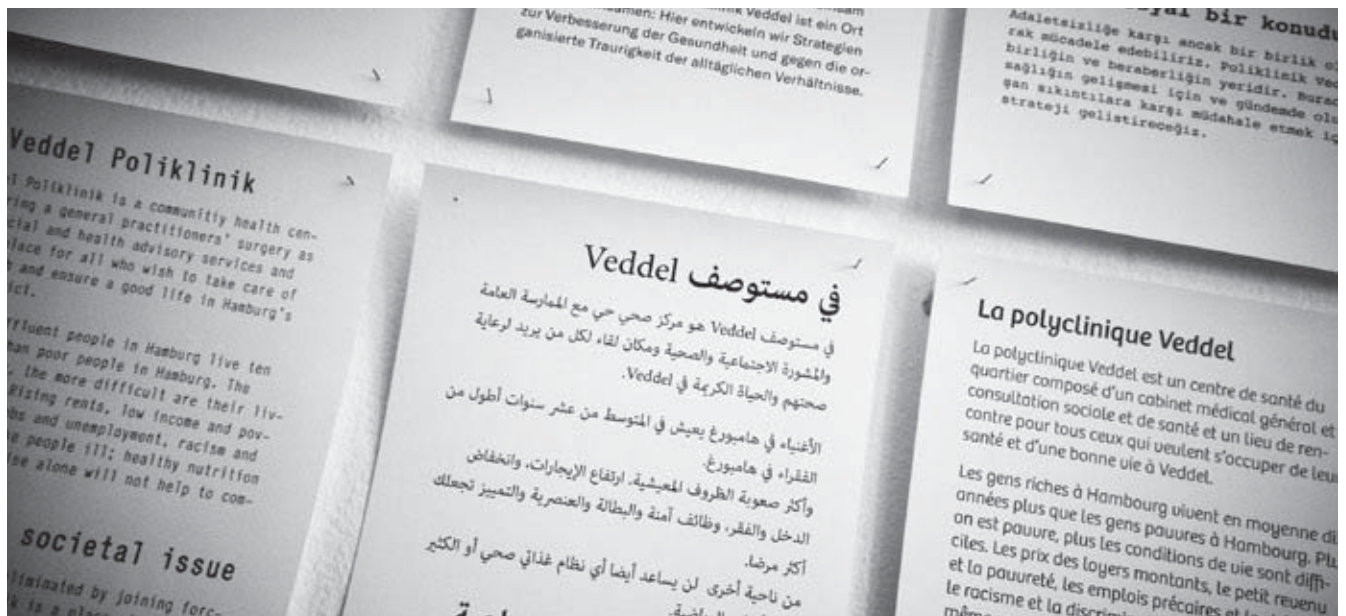 Veddel ist ein Ort
Hier entwickeln wir Strategien
zur Verbesserung der Gesundheit und gegen die or-
ganisierte Traurigkeit der alltäglichen Verhältnisse.
bir konudu
Adaletsizliğe karşı ancak bir birlik
rak mücadele edebiliriz. Poliklinik
birliğin ve beraberliğin yeridir.
sağlığın gelişmesi için ve gündemde
gan sıkıntılara karşı müdahale etmek
strateji geliştireceğiz.
Veddel Poliklinik
Poliklinik is a communitiy health cen-
ring a general practitioners' surgery as
cial and health advisory services and
lace for all who wish to take care of
and ensure a good life in Hamburg's
ict.
ffluent people in Hamburg live ten
han poor people in Hamburg. The
the more difficult are their liv-
Rizing rents, low income and pov-
bs and unemployment, racism and
people ill; healthy nutrition
ise alone will not help to com-
societal issue
liminated by joining forc-
في مستوصف Veddel
في مستوصف Veddel هو مركز صحي حي مع الممارسة العامة
والمشورة الاجتماعية والصحية ومكان لقاء لكل من يريد لرعاية
صحتهم والحياة الكريمة في Veddel.
الأغنياء في هامبورغ يعيش في المتوسط من عشر سنوات أطول من
الفقراء في هامبورغ.
وأكثر صعوبة الظروف المعيشية، ارتفاع الإيجارات، وانخفاض
الدخل والفقر، وظائف آمنة والبطالة والعنصرية والتمييز تجعلك
أكثر مرضا.
من ناحية أخرى لن يساعد أيضا أي نظام غذائي صحي أو الكثير
La polyclinique Veddel
La polyclinique Veddel est un centre de santé du
quartier composé d'un cabinet médical général et
consultation sociale et de santé et un lieu de ren-
contre pour tous ceux qui veulent s'occuper de leur
santé et d'une bonne vie à Veddel.
Les gens riches à Hambourg vivent en moyenne di
années plus que les gens pauvres à Hambourg. Plu
on est pauvre, plus les conditions de vie sont diffi-
ciles. Les prix des loyers montants, le petit revenu
et la pauvreté, les emplois précaires et
le racisme et la discrim